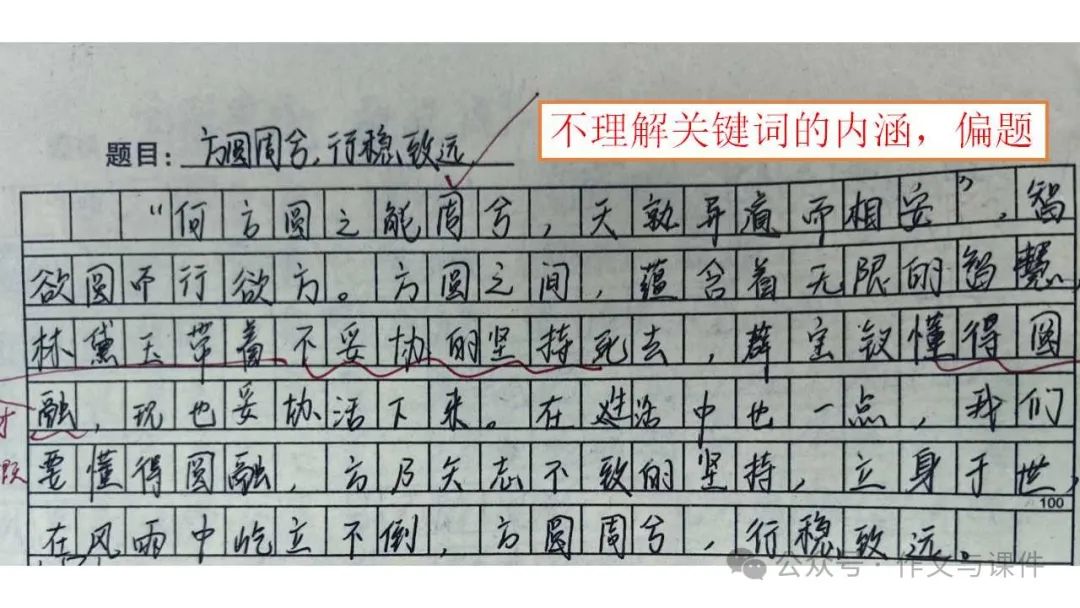 不理解关键词的内涵，偏题
题目：方圆周兮，行稳致远
“何方圆之能周兮，夫孰异道而相安”，智
欲圆而行欲方。方圆之间，蕴含着无限的智慧，
林黛玉带着不妥协的坚持死去，薛宝钗懂得圆
融，玩也妥协活下来。在生活中也一点，我们
要懂得圆融，方乃矢志不致的坚持，立身于世，
100
在风雨中屹立不倒，方圆周兮，行稳致远。
公众号·作文与课件